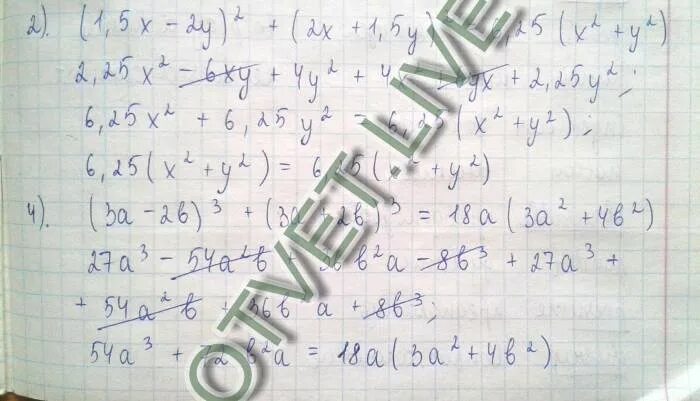 2). (1,5x - 2y)² + (2x + 1,5y) 6,25 (x² + y²)
2,25x² - 6xy + 4y² + 4 yx + 2,25y²;
6,25x² + 6,25y² = 6,25 (x² + y²);
6,25(x² + y²) = 6,25(x² + y²)
4). (3a - 2b)³ + (3a + 2b)³ = 18a(3a² + 4b²)
27a³ - 54a²b + 36b²a - 8b³ + 27a³ +
+ 54a²b + 36b a + 8b³;
54a³ + 72b²a = 18a(3a² + 4b²)
OTVET.LIVE